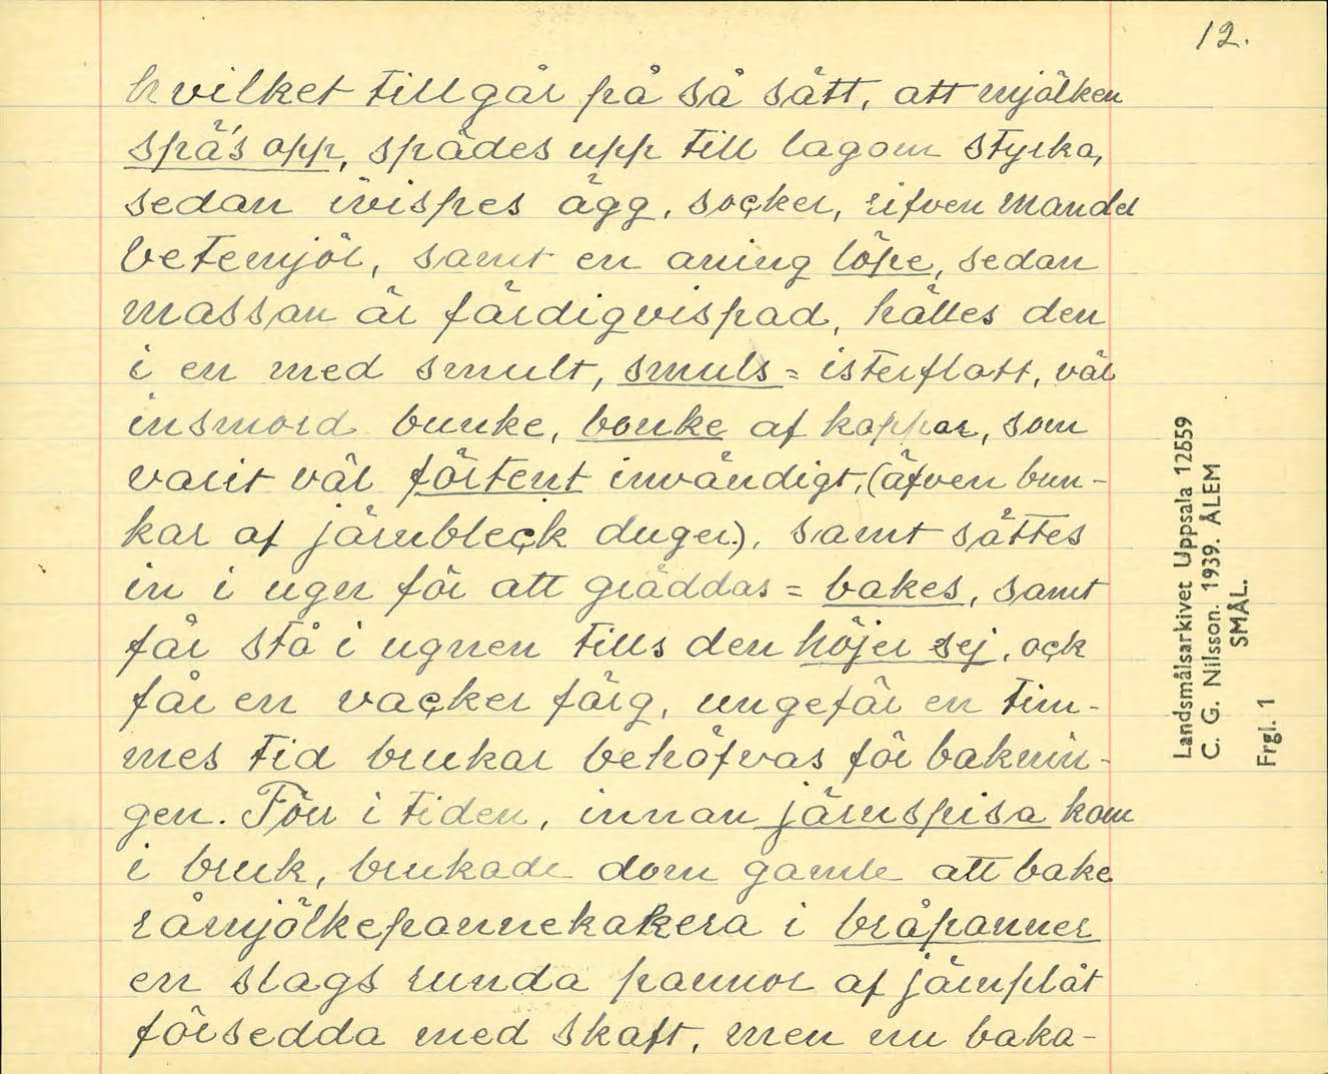 12.
hvilket tillgår på så sätt, att mjölken
spä's opp, spädes upp till lagom styrka,
sedan ivispes ägg, socker, rifven mandel
vetemjöl, samt en aning löpe, sedan
massan är färdigvispad, hälles den
i en med smult, smuls = isterflott, väl
insmord bunke, bonke af koppar, som
varit väl förtent invändigt, (äfven bun-
kar af järnbleck duger), samt sättes
in i ugn för att gräddas = bakes, samt
får stå i ugnen tills den höjer sej, ock
får en vacker färg, ungefär en tim-
mes tid brukar behöfvas för baknin-
gen. Förr i tiden, innan järnspisa kom
i bruk, brukade dom gamle att bake
råmjölkepannekakera i bråpanner
en slags runda pannor af järnplåt
försedda med skaft, men nu baka-
Landsmålsarkivet Uppsala 12559
C. G. Nilsson. 1939. ÅLEM
SMÅL.
Frgl. 1